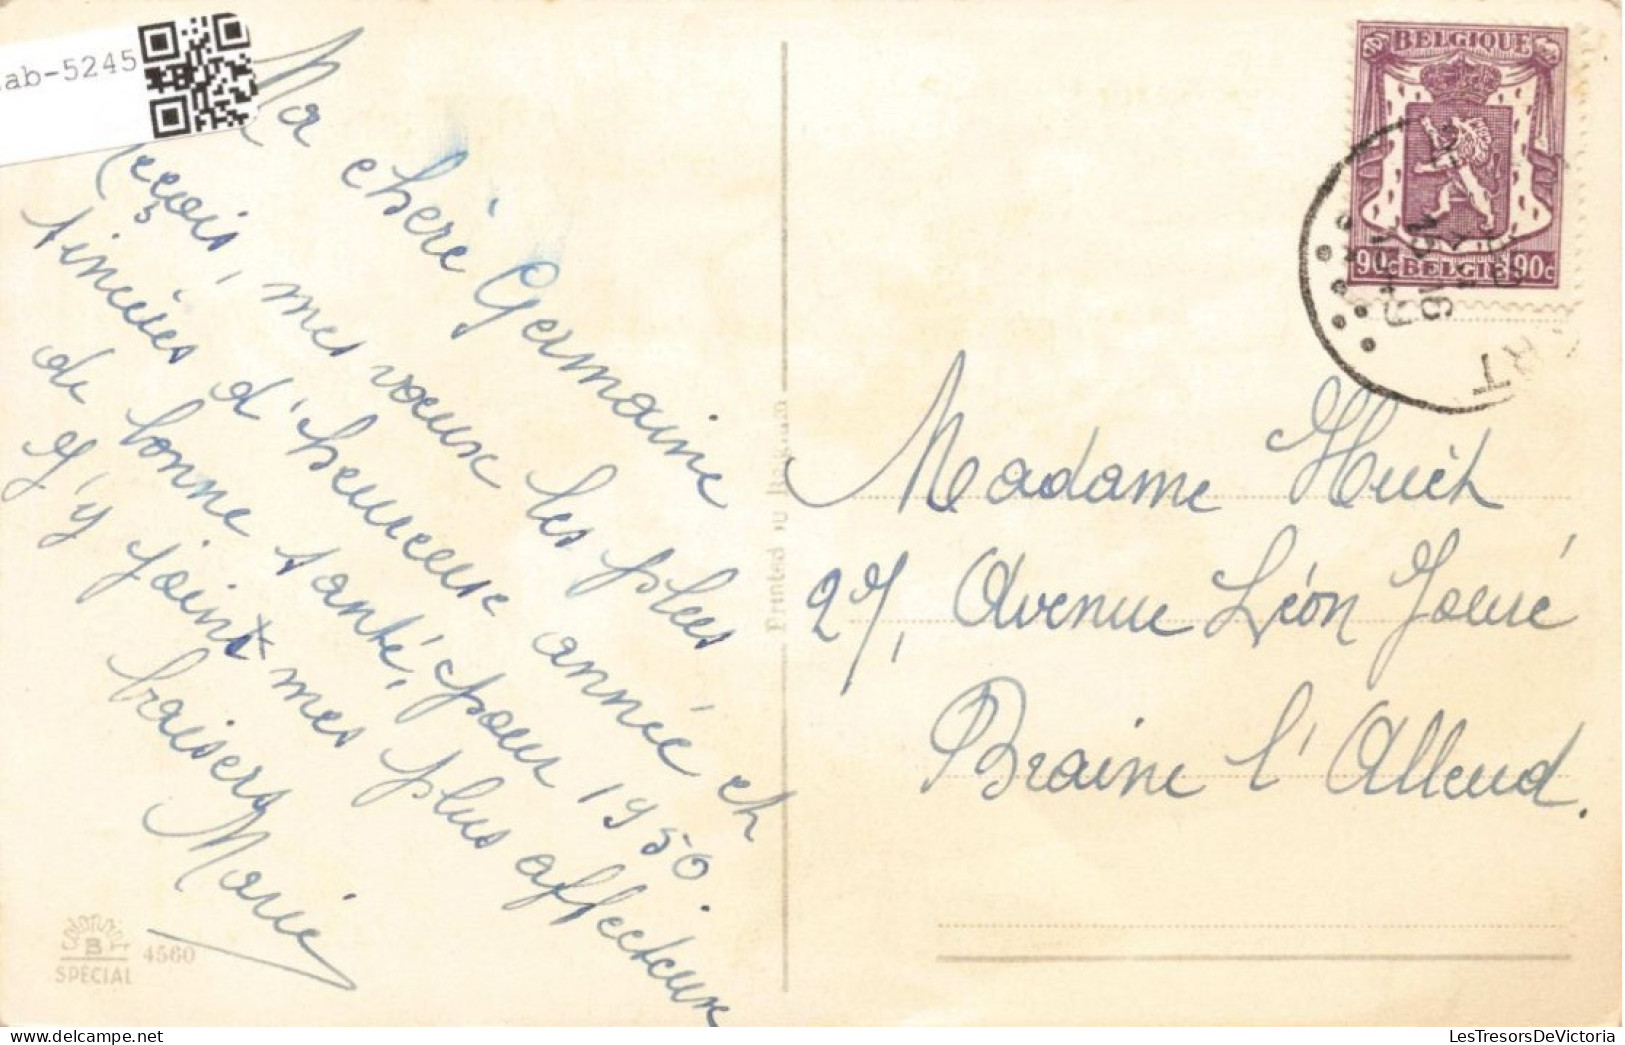 ab-5245
Ma chère Germaine
Reçois, mes vœux les plus
sincères d'heureuse année et
de bonne santé, pour 1950.
J'y joint mes plus affectueux
baisers
Marie
Colorprint
B
SPECIAL
4560
Printed in Belgium
BELGIQUE
90c BELGIE 90c
RT
Madame Huet
27, Avenue Léon Jouré
Braine l'Alleud.
LesTresorsDeVictoria